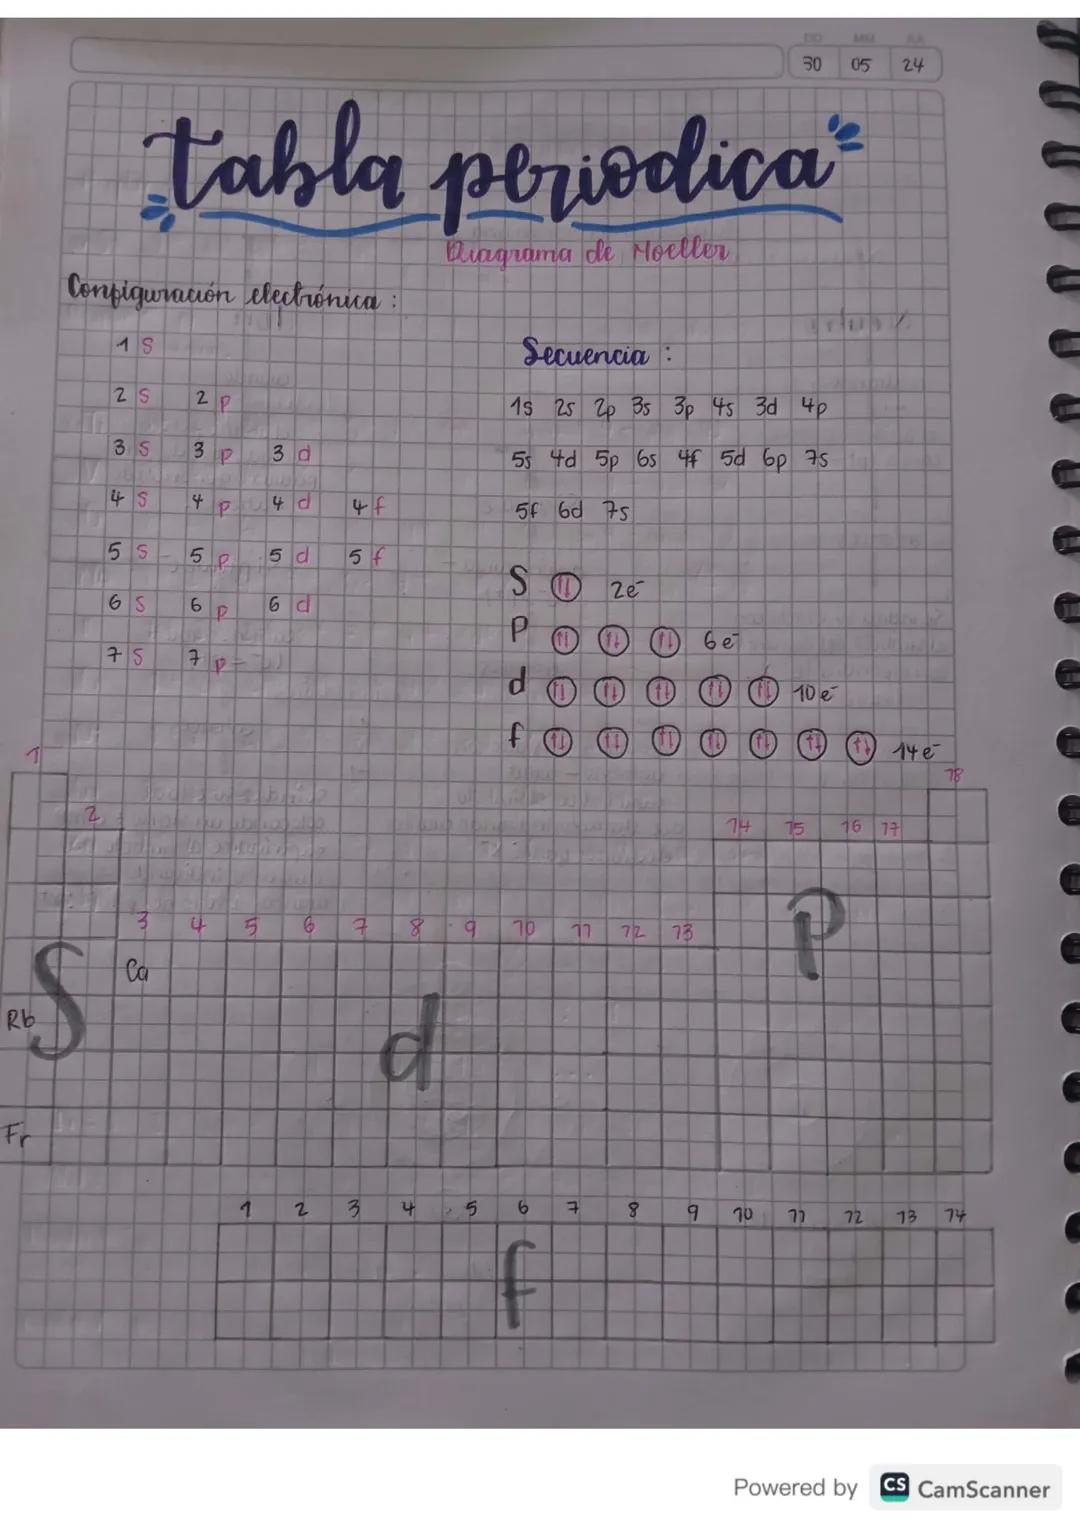 DD MM AA
30 05 24
tabla periodica
Diagrama de Moeller
Configuración electrónica :
1 s
2 s 2 p
3 s 3 p 3 d
4 s 4 p 4 d 4 f
5 s 5 p 5 d 5 f
6 s 6 p 6 d
7 s 7 p
Secuencia :
1s 2s 2p 3s 3p 4s 3d 4p
5s 4d 5p 6s 4f 5d 6p 7s
5f 6d 7s
S ⇅ 2e⁻
P ⇅ ⇅ ⇅ 6e⁻
d ⇅ ⇅ ⇅ ⇅ ⇅ 10e⁻
f ⇅ ⇅ ⇅ ⇅ ⇅ ⇅ ⇅ 14e⁻
1 18
2 14 15 16 17
3 4 5 6 7 8 9 10 11 12 13
P
Ca
S
Rb
d
Fr
1 2 3 4 5 6 7 8 9 10 11 12 13 14
f
Powered by CS CamScanner